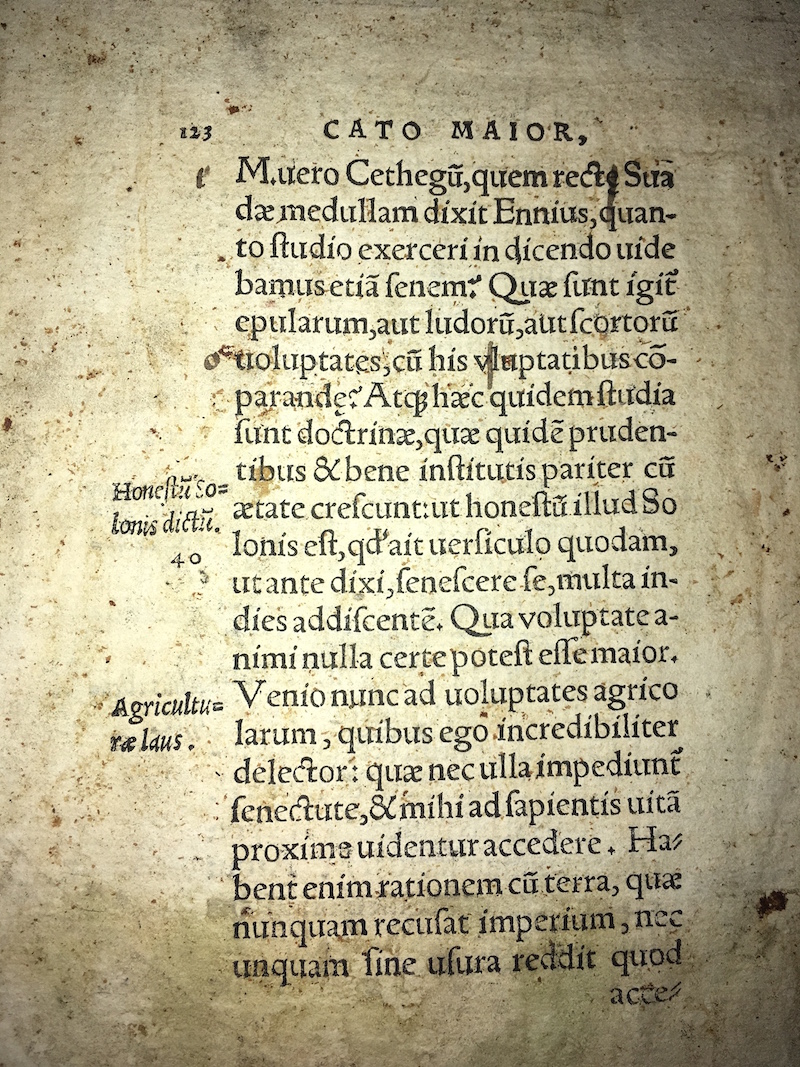 123 CATO MAIOR,
M.uero Cethegū,quem recte Suā
dæ medullam dixit Ennius,quan-
to ſtudio exerceri in dicendo uide
bamus etiã ſenem? Quæ ſunt igit᷑
epularum,aut ludorū,aut ſcortorū
uoluptates,cū his voluptatibus cō-
parandę? Atq; hæc quidem ſtudia
ſunt doctrinæ,quæ quidẽ pruden-
tibus & bene inſtitutis pariter cū
Honeſtū So=
ætate creſcunt:ut honeſtū illud So
lonis dictū.
lonis eſt,qd' ait uerſiculo quodam,
40
ut ante dixi,ſeneſcere ſe,multa in-
dies addiſcentẽ. Qua voluptate a-
nimi nulla certe poteſt eſſe maior.
Agricultu=
Venio nunc ad uoluptates agrico
ræ laus.
larum, quibus ego incredibiliter
delector: quæ nec ulla impediunt᷑
ſenectute,& mihi ad ſapientis uitã
proxime uidentur accedere. Ha-
bent enim rationem cū terra, quæ
nunquam recuſat imperium, nec
unquam ſine uſura reddit quod
acce-